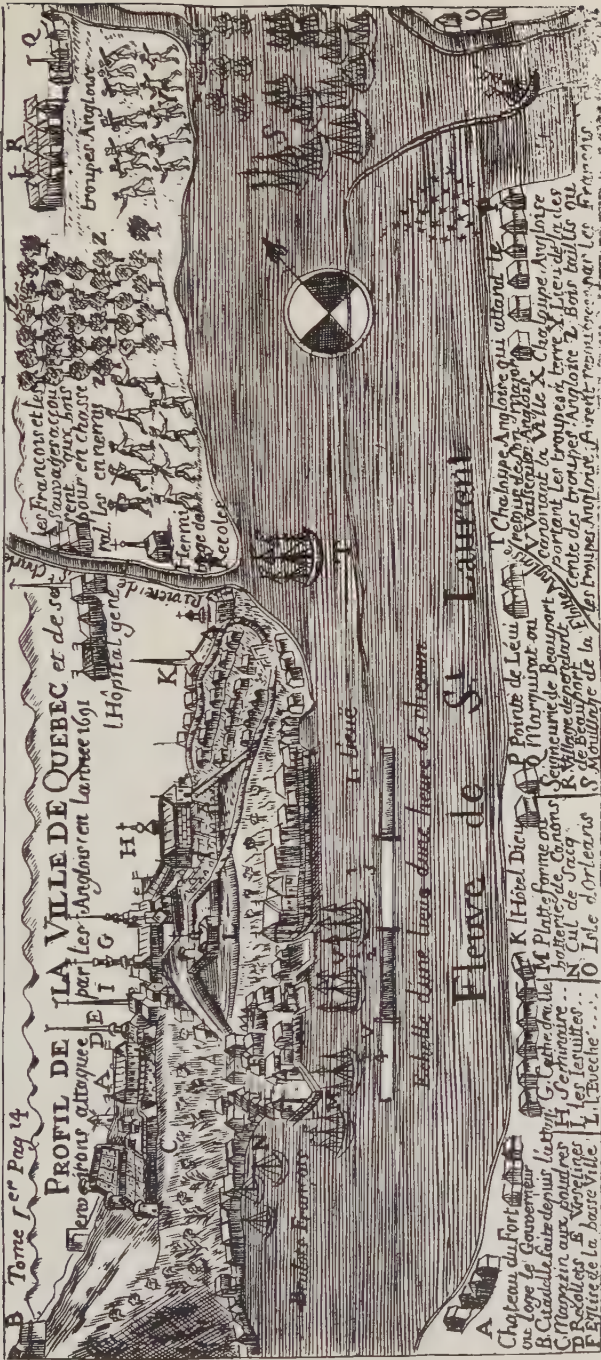 B Tome 1er Pag 14
PROFIL DE LA VILLE DE QUEBEC et de ses
environs attaquée par les Anglois en Lannee 1691
A D E I G F
H
K
C
N
M
V
V
T
S
Z
Z
F R
Q
l'Hôpital gen
Riviere de St Charle
Hermi
tage des
Recolec
le Francois et les
Sauvages accou
rent aux bois
pour en chasse
les ennemis
troupes Angloise
1 Lieuë
Echelle dune lieuë dune heure de chemin
Fleuve de St Laurent
A
Chateau du Fort
ou loge le Gouverneur
B Citadelle faite depuis
C Magazin aux poudres
D Recolets E Ursulines
F Eglise de la basse Ville
G Cathedralle
H Seminaire
I les Iesuittes
L l'Eveché
K l'Hôtel Dieu
M Platte forme ou
batterie de Canons
N Cul de Sacq
O Isle d'orleans
P Pointe de Lewi
Seigneurie de Beauport
R Village dependant
de Beauport
S Moullinage de la Flotte
T Chaloupe Angloise qui attand le
retour de son major
V Vaisseaux Anglois
canonant la Ville X Chaloupe Angloise
portant les troupes à terre Y Lieu de la des
cente des troupes Angloise Z Bois taillis ou
les troupes Angloise furent par les Francois